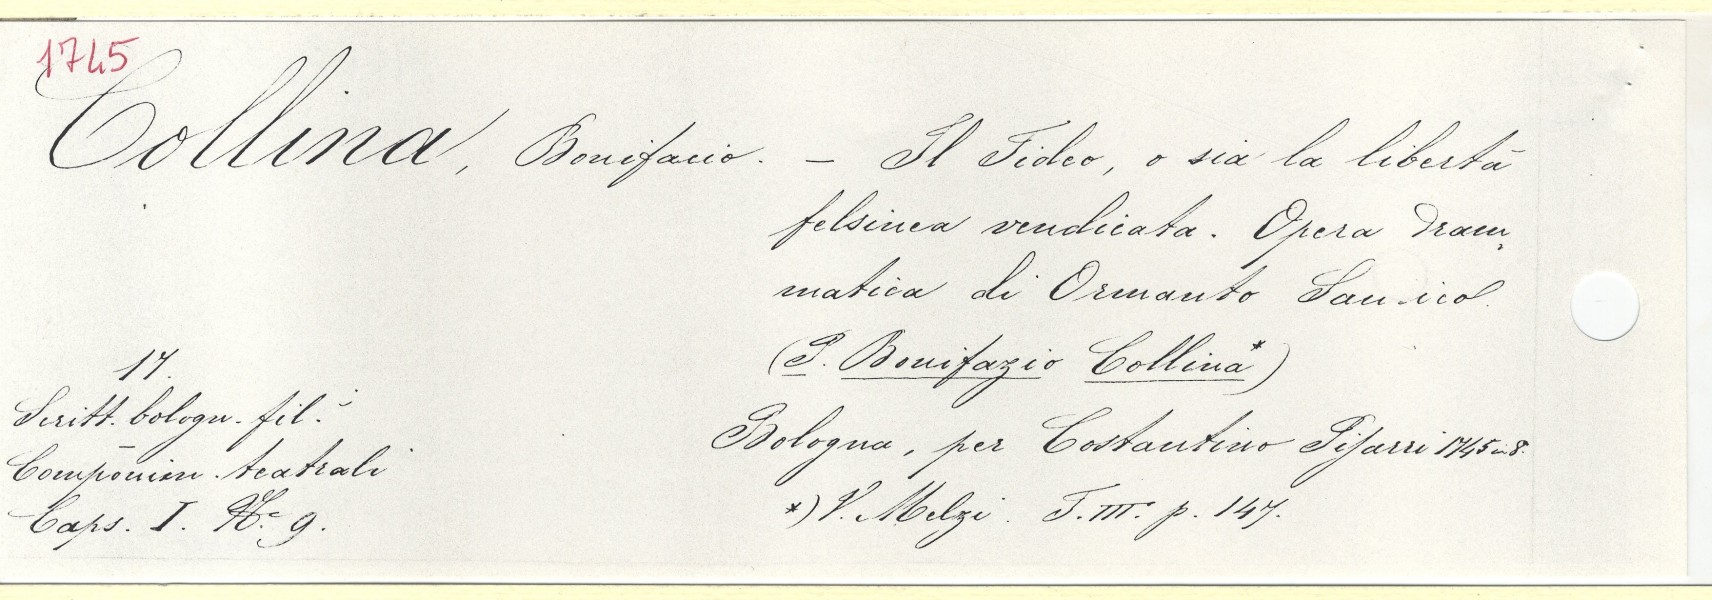 1745
Collina, Bonifacio. – Il Fideo, o sia la libertà
felsinea vendicata. Opera dram-
matica di Ormanto
(P. Bonifazio Collina*)
Bologna, per Costantino Pisarri 1745 in 8.
*) V. Melzi. T. III. p. 147.
17.
Scritt. bologn. fil.i
Componim. teatrali
Caps. I. N.º 9.